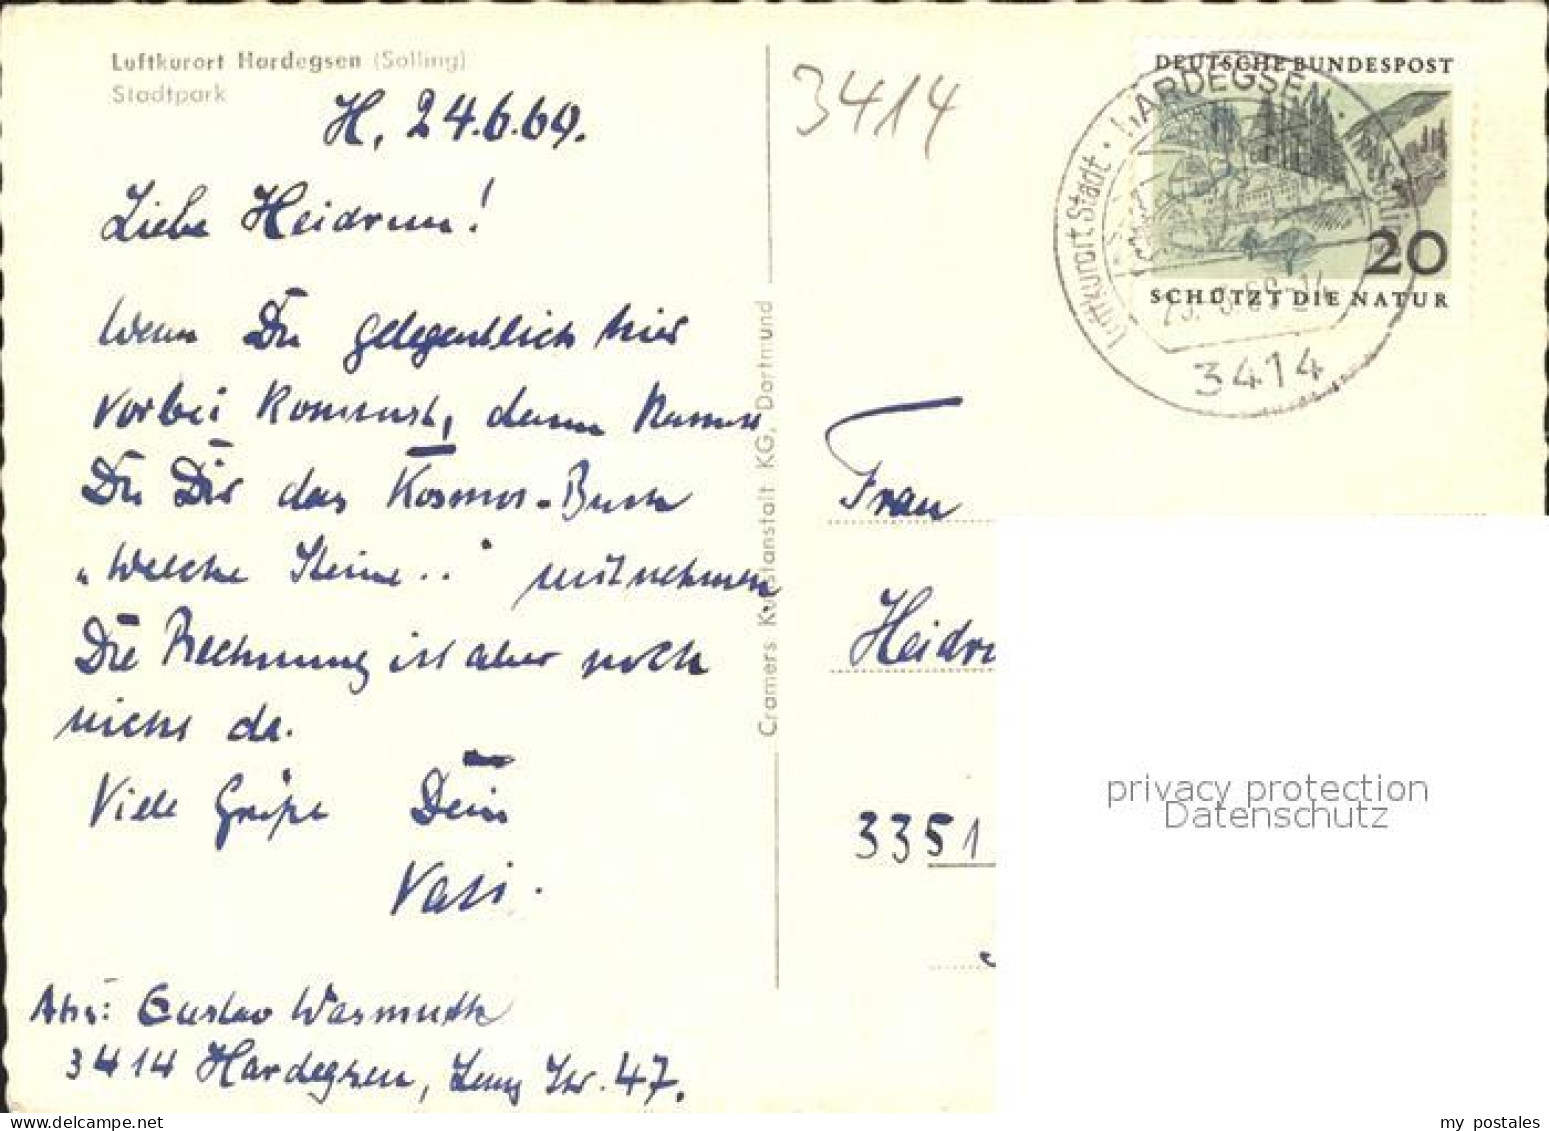 Luftkurort Hardegsen (Solling)
Stadtpark
H, 24.6.69.
Liebe Heidrun!
Wenn Du gelegentlich hier
vorbei kommst, dann kannst
Du Dir das Kosmos-Buch
„Welche Steine.." mitnehmen.
Die Rechnung ist aber noch
nicht da.
Viele Grüße Dein
Vati.
Abs: Gustav Wasmuth
3414 Hardegsen, Lange Str. 47.
Cramers Kunstanstalt KG, Dortmund
3414
DEUTSCHE BUNDESPOST
20
SCHÜTZT DIE NATUR
Luftkurort Stadt · HARDEGSEN ·
3414
Frau
Heidru
3351
privacy protection
Datenschutz
my postales